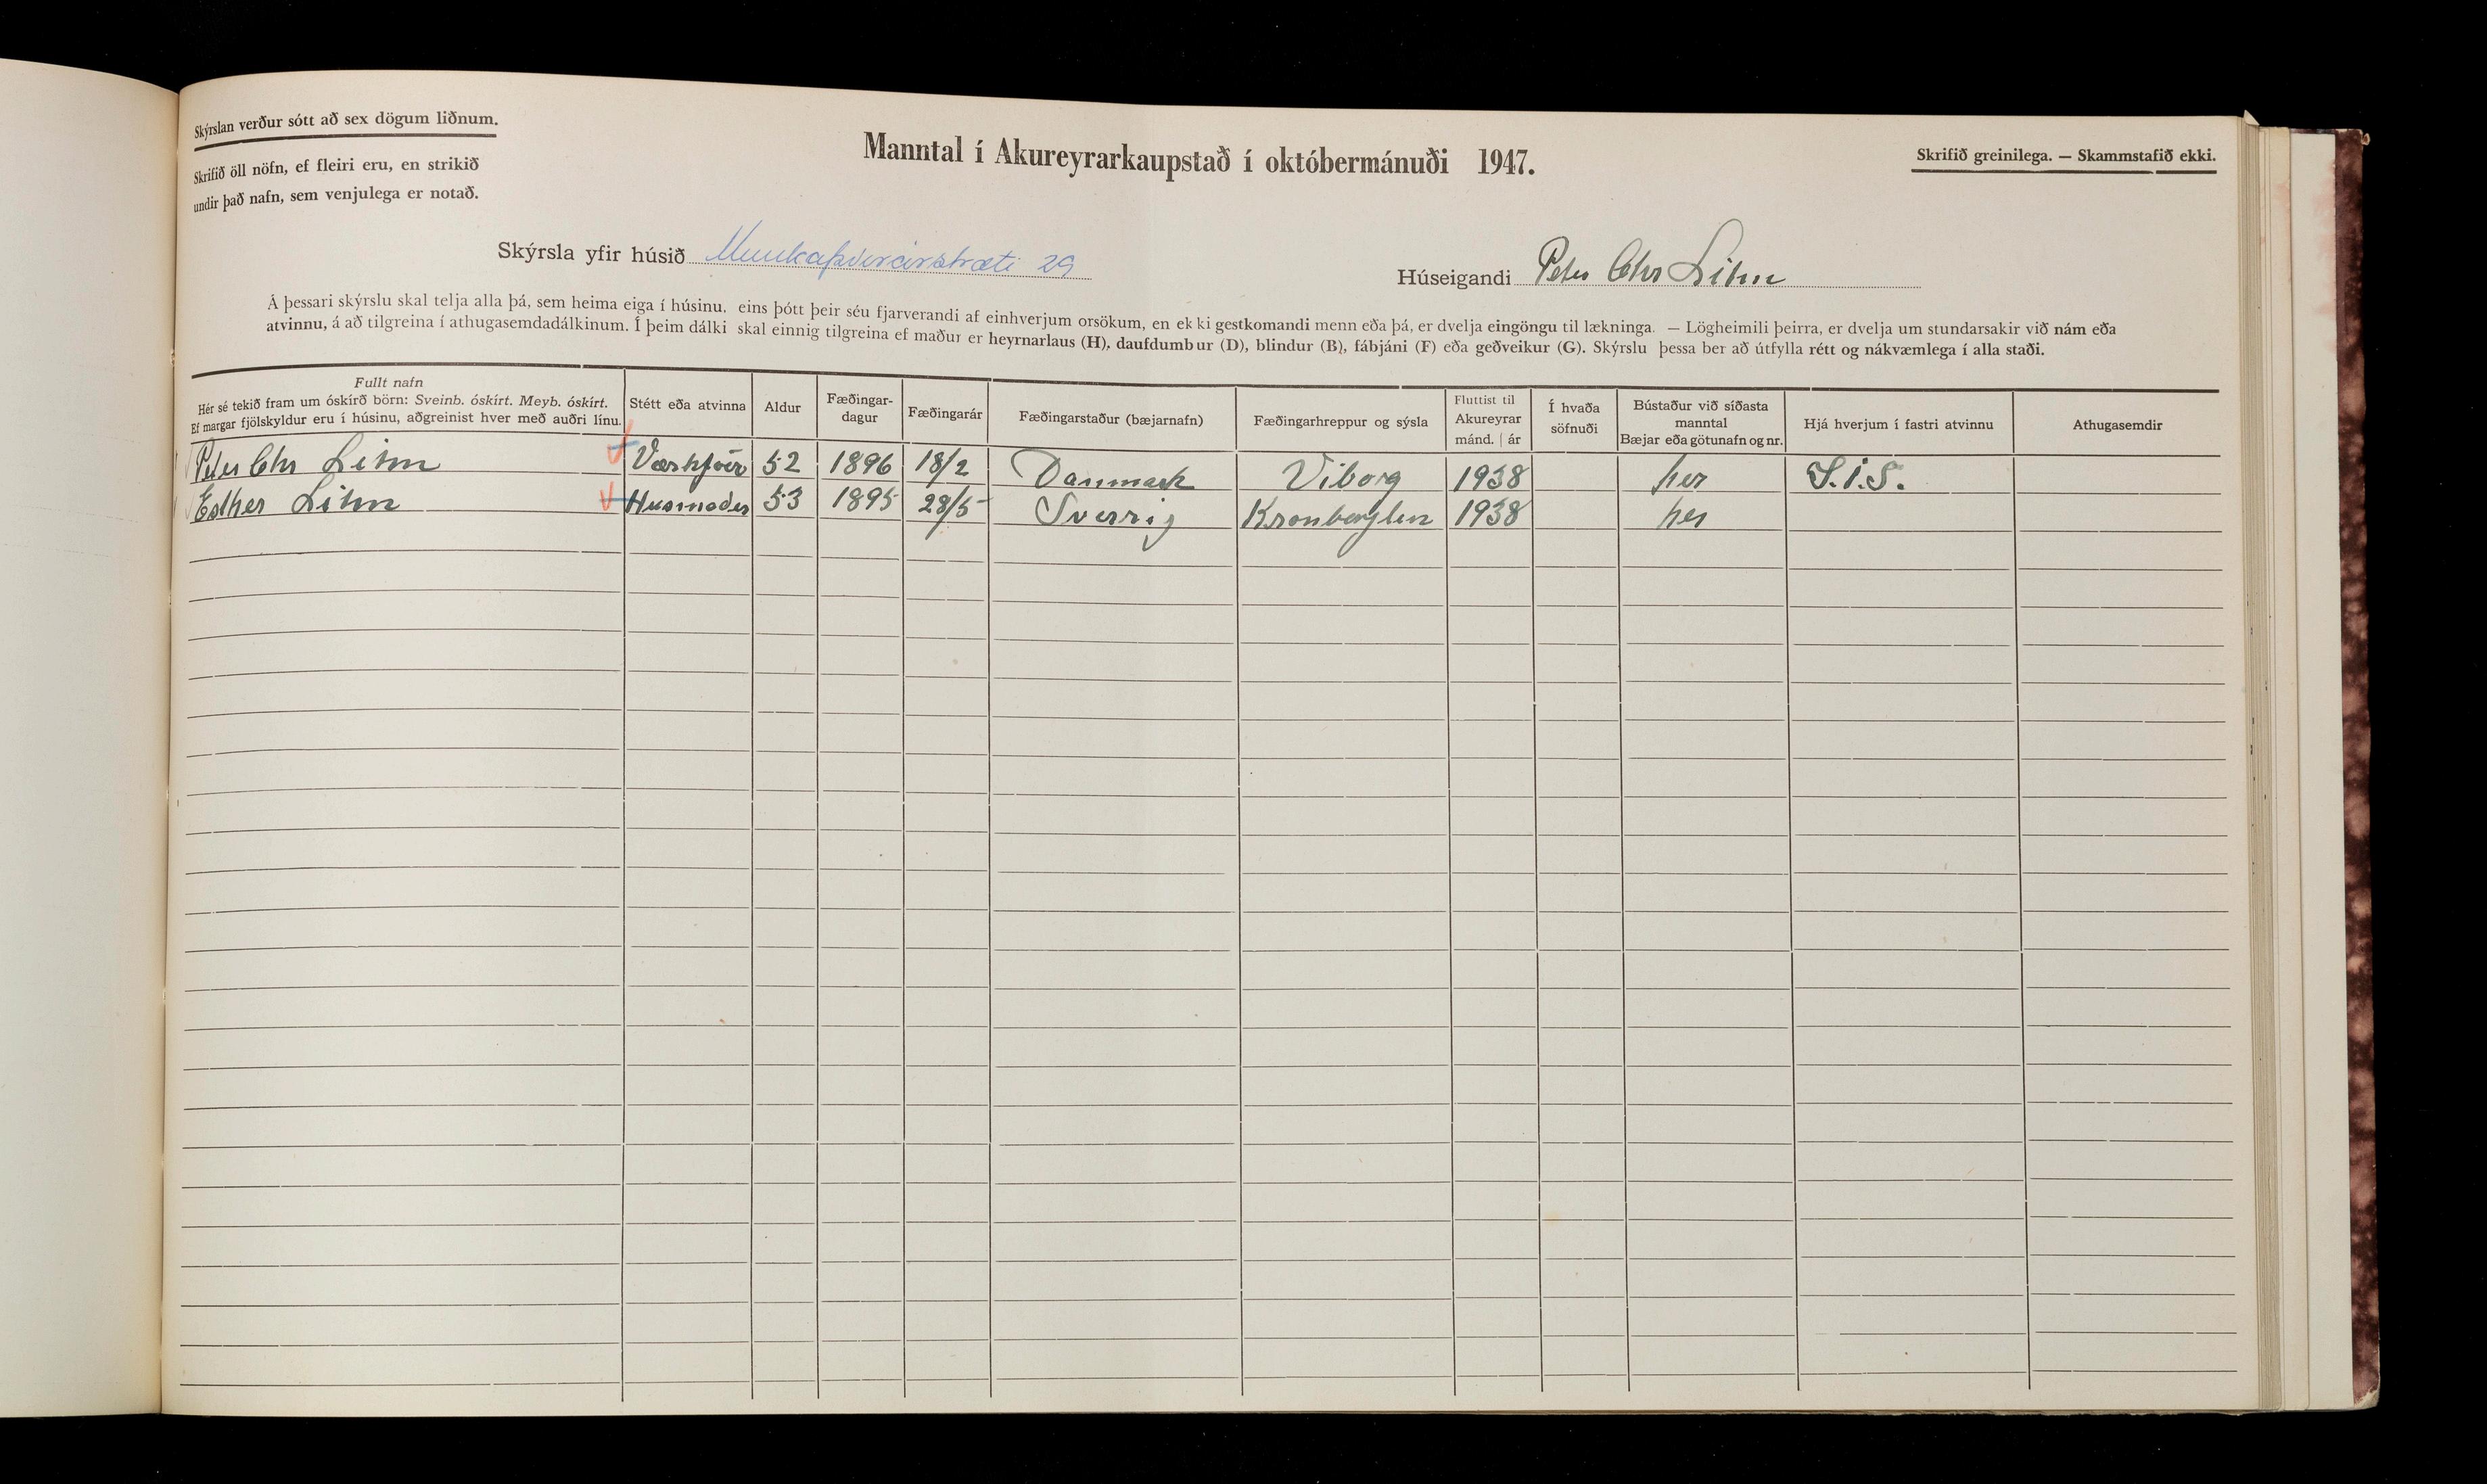 Skýrslan verður sótt að sex dögum liðnum.
Skrifið öll nöfn, ef fleiri eru, en strikið
undir það nafn, sem venjulega er notað.
Manntal í Akureyrarkaupstað í októbermánuði 1947.
Skrifið greinilega. — Skammstafið ekki.
Skýrsla yfir húsið Munkaþverárstræti 29
Húseigandi Peter Chr Lihn
Á þessari skýrslu skal telja alla þá, sem heima eiga í húsinu, eins þótt þeir séu fjarverandi af einhverjum orsökum, en ekki gestkomandi menn eða þá, er dvelja eingöngu til lækninga. — Lögheimili þeirra, er dvelja um stundarsakir við nám eða
atvinnu, á að tilgreina í athugasemdadálkinum. Í þeim dálki skal einnig tilgreina ef maður er heyrnarlaus (H), daufdumbur (D), blindur (B), fábjáni (F) eða geðveikur (G). Skýrslu þessa ber að útfylla rétt og nákvæmlega í alla staði.
Fullt nafn
Hér sé tekið fram um óskírð börn: Sveinb. óskírt. Meyb. óskírt.
Ef margar fjölskyldur eru í húsinu, aðgreinist hver með auðri línu.
Stétt eða atvinna
Aldur
Fæðingar-
dagur
Fæðingarár
Fæðingarstaður (bæjarnafn)
Fæðingarhreppur og sýsla
Fluttist til
Akureyrar
mánd. | ár
Í hvaða
söfnuði
Bústaður við síðasta
manntal
Bæjar eða götunafn og nr.
Hjá hverjum í fastri atvinnu
Athugasemdir
Peter Chr Lihn Værkfört 52 1896 18/2 Danmark Viborg 1938 her S.I.S.
Esther Lihn Husmoder 53 1895 28/5 Sverrig Kronberglen 1938 her